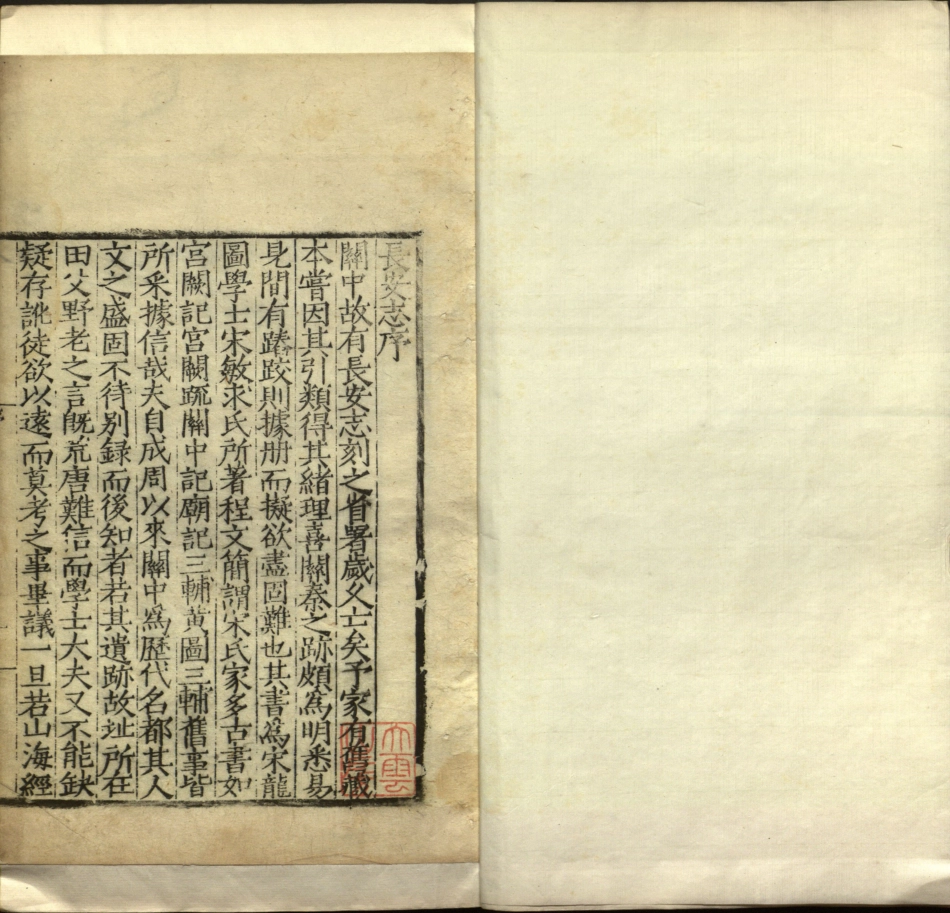 長安志序
關中故有長安志刻之省署歲久亡矣予家有舊藏
本嘗因其引類得其緒理喜關秦之跡頗為明悉易
見間有踳駮則據册而擬欲盡固難也其書為宋龍
圖學士宋敏求氏所著程文簡謂宋氏家多古書如
宮闕記宮闕疏關中記廟記三輔黃圖三輔舊事皆
所采據信哉夫自成周以來關中為歷代名都其人
文之盛固不待別録而後知者若其遺跡故址所在
田父野老之言既荒唐難信而學士大夫又不能缺
疑存訛徒欲以遠而莫考之事畢議一旦若山海經